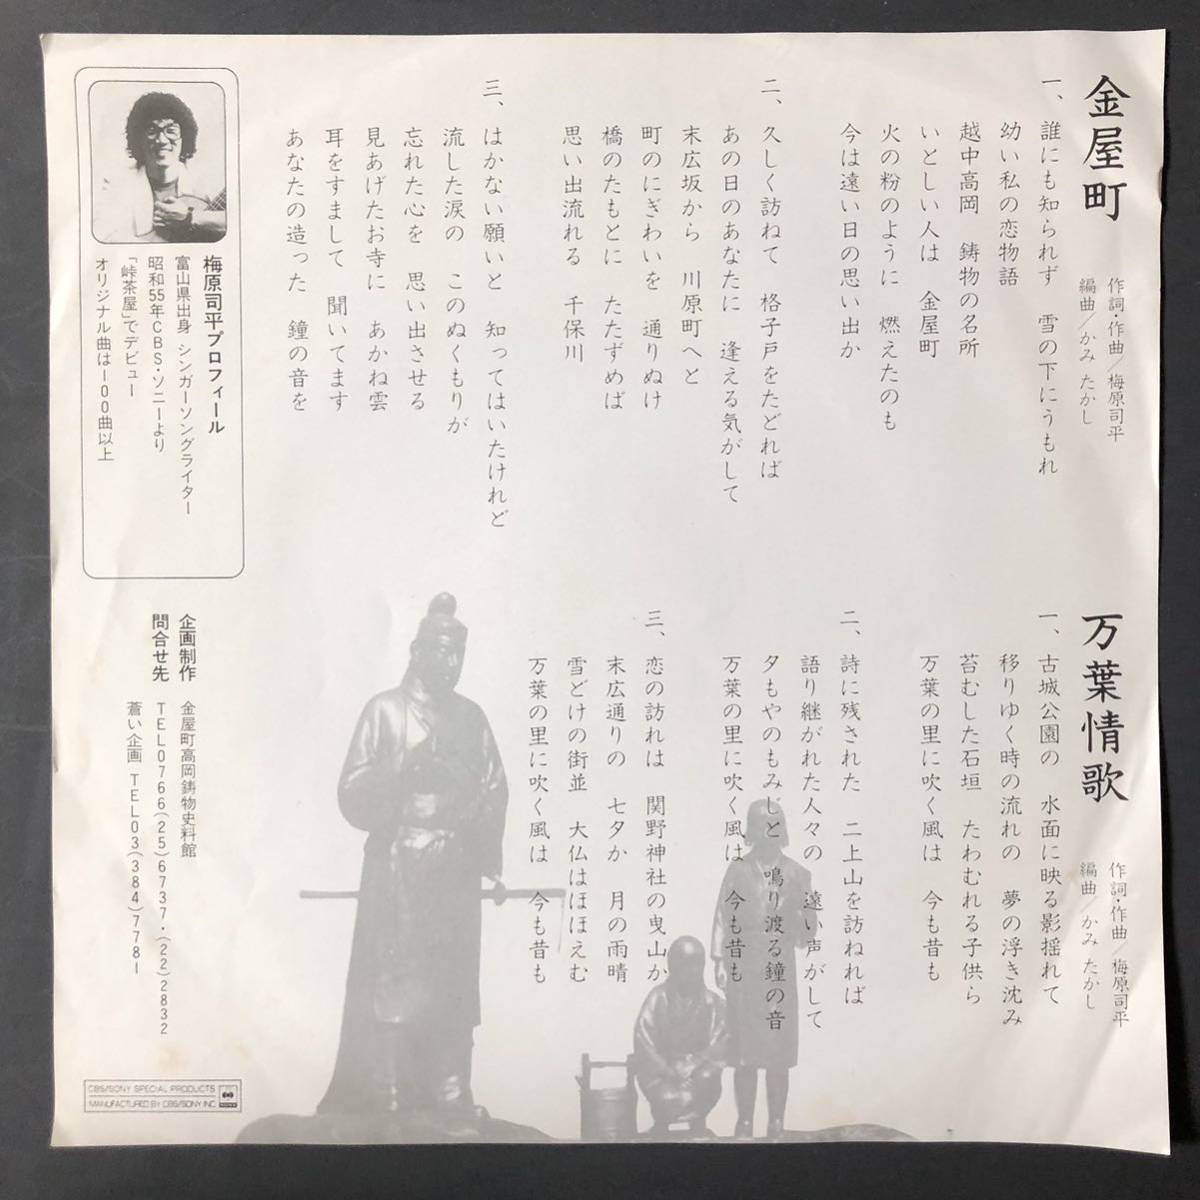 金屋町
作詞・作曲/梅原司平
編曲/かみ たかし
一、誰にも知られず 雪の下にうもれ
幼い私の恋物語
越中高岡 鋳物の名所
いとしい人は 金屋町
火の粉のように 燃えたのも
今は遠い日の思い出か
二、久しく訪ねて 格子戸をたどれば
あの日のあなたに 逢える気がして
末広坂から 川原町へと
町のにぎわいを 通りぬけ
橋のたもとに たたずめば
思い出流れる 千保川
三、はかない願いと 知ってはいたけれど
流した涙の このぬくもりが
忘れた心を 思い出させる
見あげたお寺に あかね雲
耳をすまして 聞いてます
あなたの造った 鐘の音を
梅原司平プロフィール
富山県出身 シンガーソングライター
昭和55年CBS・ソニーより
「峠茶屋」でデビュー
オリジナル曲は100曲以上
万葉情歌
作詞・作曲/梅原司平
編曲/かみ たかし
一、古城公園の 水面に映る影揺れて
移りゆく時の流れの 夢の浮き沈み
苔むした石垣 たわむれる子供ら
万葉の里に吹く風は 今も昔も
二、詩に残された 二上山を訪ねれば
語り継がれた人々の 遠い声がして
夕もやのもみじと 鳴り渡る鐘の音
万葉の里に吹く風は 今も昔も
三、恋の訪れは 関野神社の曳山か
末広通りの 七夕か 月の雨晴
雪どけの街並 大仏はほほえむ
万葉の里に吹く風は 今も昔も
企画制作 金屋町高岡鋳物史料館
問合せ先 TEL0766(25)6737・(22)2832
蒼い企画 TEL03(384)7781
CBS/SONY SPECIAL PRODUCTS
MANUFACTURED BY CBS/SONY INC.